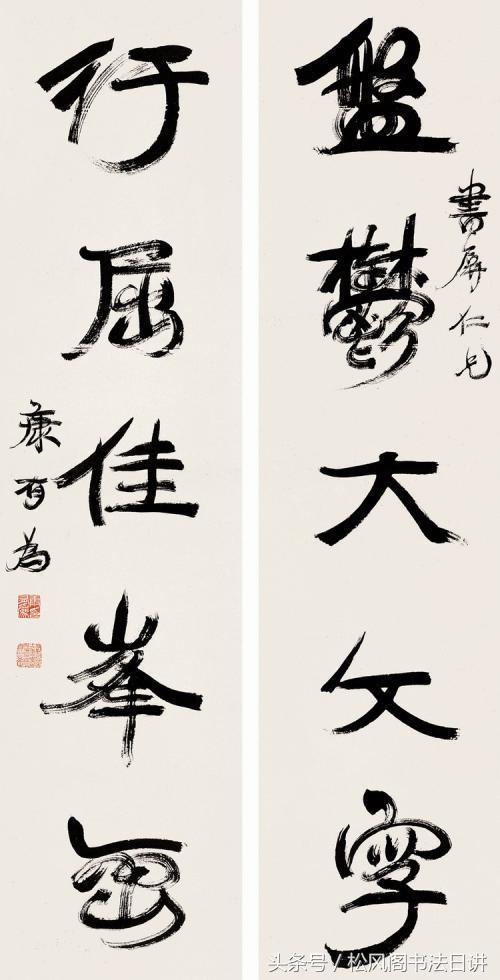 盤鬱大文字
書屏仁兄
行屈佳峯
康有為
头条号/松风阁书法日讲